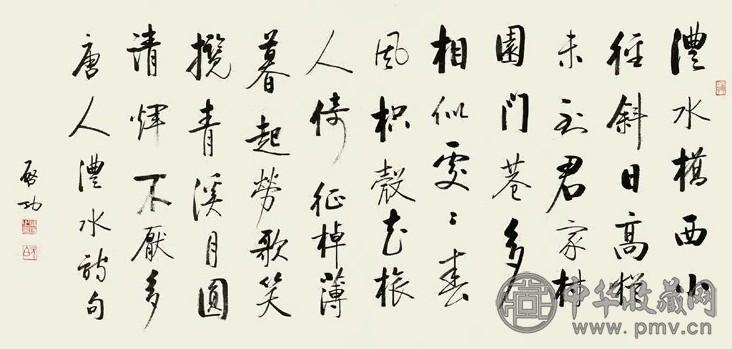 澧水橋西小
徑斜日高猶
未到君家村
園門巷多
相似處々春
風枳殼花旅
人倚征棹薄
暮起勞歌笑
攬青溪月圓
清輝不厭多
唐人澧水詩句
啓功
中华收藏网
www.pmv.cn